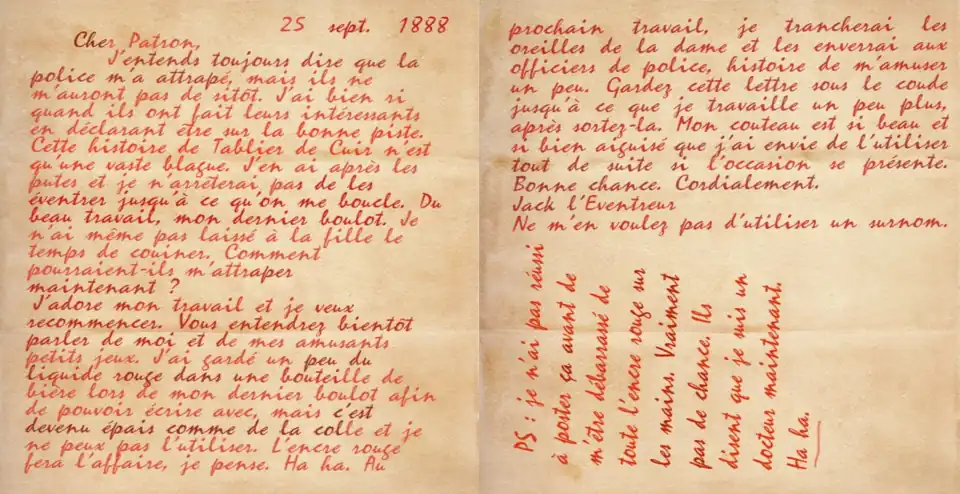 25 sept. 1888
Cher Patron,
J'entends toujours dire que la
police m'a attrapé, mais ils ne
m'auront pas de sitôt. J'ai bien ri
quand ils ont fait leurs intéressants
en déclarant être sur la bonne piste.
Cette histoire de Tablier de Cuir n'est
qu'une vaste blague. J'en ai après les
putes et je n'arrêterai pas de les
éventrer jusqu'à ce qu'on me boucle. Du
beau travail, mon dernier boulot. Je
n'ai même pas laissé à la fille le
temps de couiner. Comment
pourraient-ils m'attraper
maintenant ?
J'adore mon travail et je veux
recommencer. Vous entendrez bientôt
parler de moi et de mes amusants
petits jeux. J'ai gardé un peu du
liquide rouge dans une bouteille de
bière lors de mon dernier boulot afin
de pouvoir écrire avec, mais c'est
devenu épais comme de la colle et je
ne peux pas l'utiliser. L'encre rouge
fera l'affaire, je pense. Ha ha. Au
prochain travail, je trancherai les
oreilles de la dame et les enverrai aux
officiers de police, histoire de m'amuser
un peu. Gardez cette lettre sous le coude
jusqu'à ce que je travaille un peu plus,
après sortez-la. Mon couteau est si beau et
si bien aiguisé que j'ai envie de l'utiliser
tout de suite si l'occasion se présente.
Bonne chance. Cordialement.
Jack l'Eventreur
Ne m'en voulez pas d'utiliser un surnom.
PS : je n'ai pas réussi
à poster ça avant de
m'être débarassé de
toute l'encre rouge sur
les mains. Vraiment
pas de chance. Ils
disent que je suis un
docteur maintenant.
Ha ha.